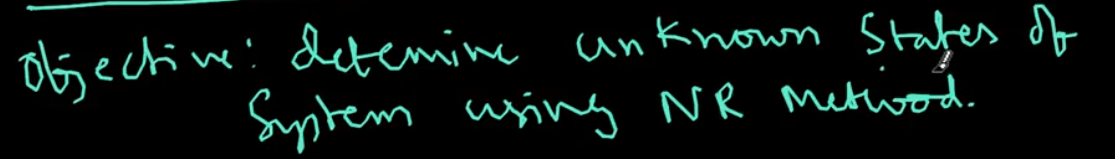 Objective: detemine unknown States of
System using NR Method.